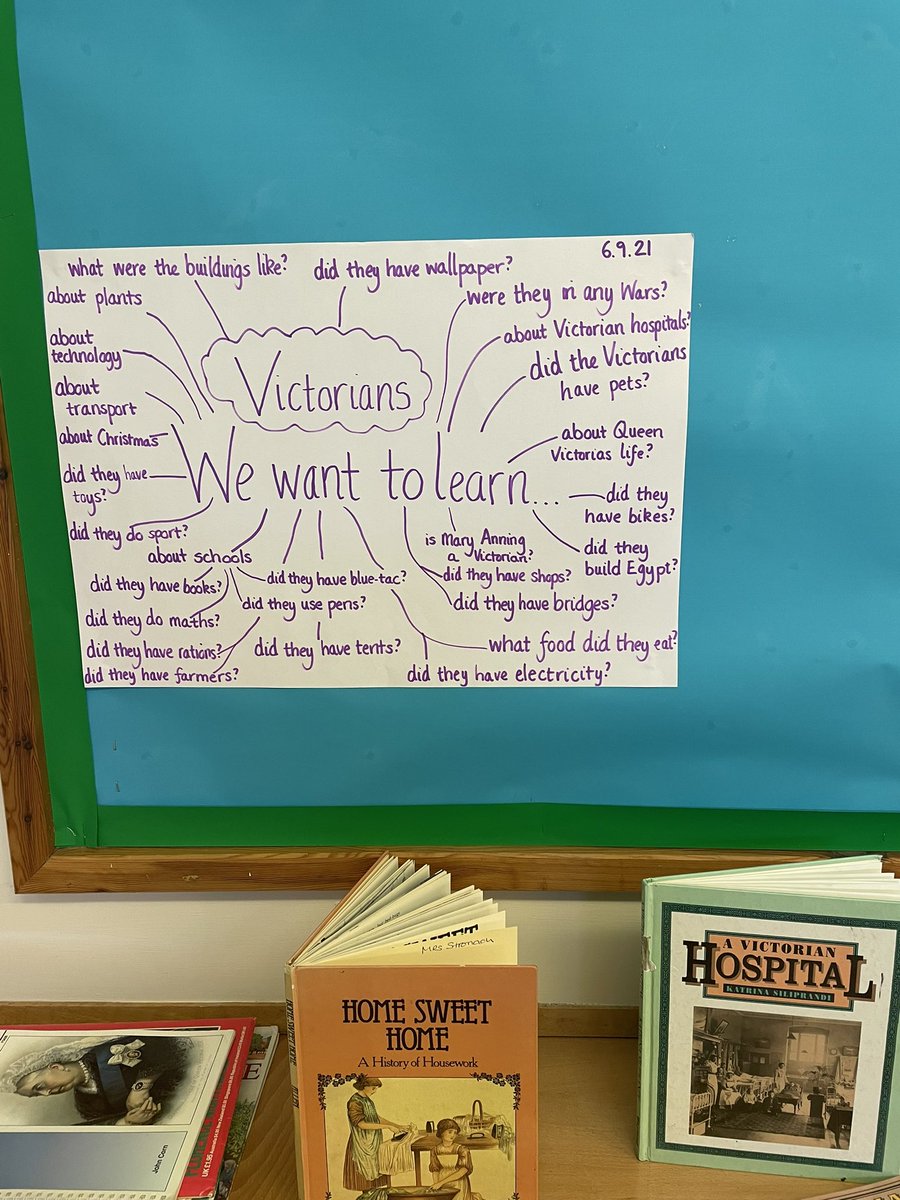 6.9.21
what were the buildings like?
did they have wallpaper?
about plants
were they in any Wars?
about
technology
about Victorian hospitals?
did the Victorians
have pets?
Victorians
about
transport
about Christmas
about Queen
Victorias life?
We want to learn...
did they have
toys?
did they
have bikes?
did they do sport?
is Mary Anning
a Victorian?
did they
build Egypt?
about schools
did they have books?
did they have blue-tac?
did they have shops?
did they use pens?
did they have bridges?
did they do maths?
did they have rations?
did they have tents?
what food did they eat?
did they have farmers?
did they have electricity?
Mrs Stronach
HOME SWEET
HOME
A History of Housework
A VICTORIAN
HOSPITAL
KATRINA SILIPRANDI
John Corn
UK £1.95